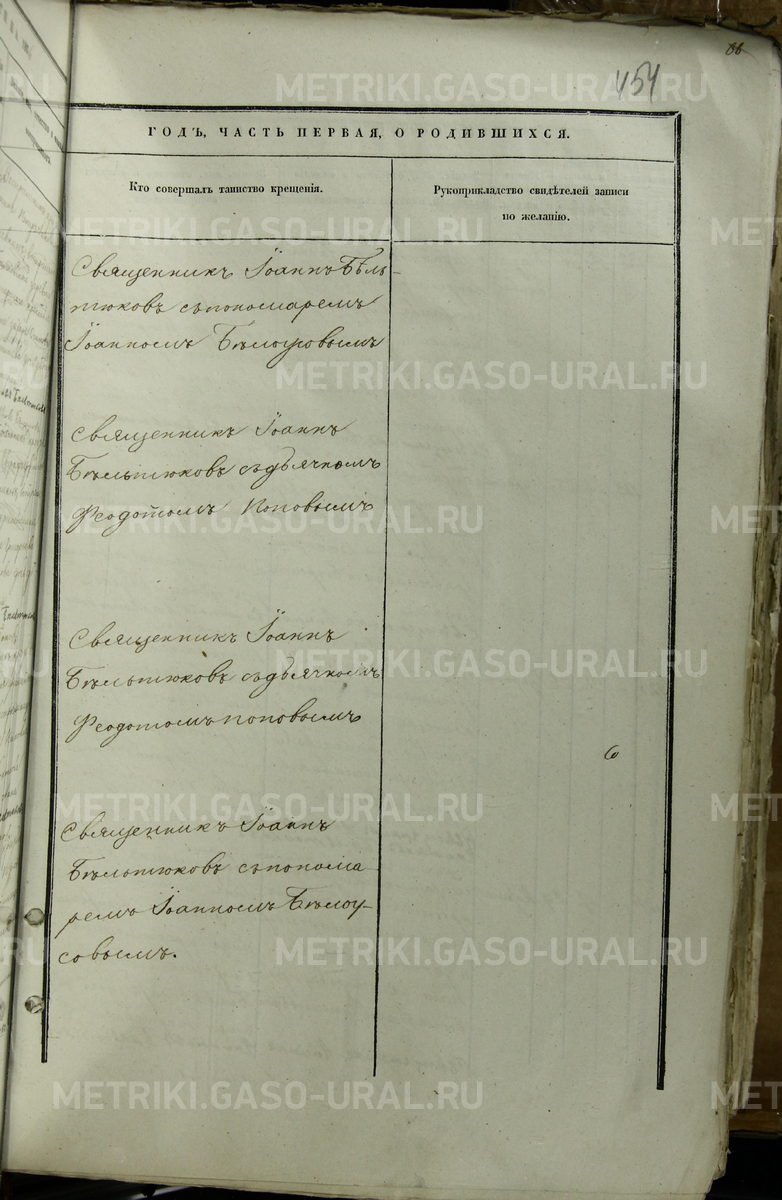 66
454
ГОДЪ, ЧАСТЬ ПЕРВАЯ, О РОДИВШИХСЯ.
Кто совершалъ таинство крещенія.
Рукоприкладство свидѣтелей записи
по желанію.
Священникъ Іоаннъ Бѣль-
тюковъ съ пономаремъ
Іоанномъ Бѣлоусовымъ
Священникъ Іоаннъ
Бѣльтюковъ съ дьячкомъ
Ѳеодотомъ Поповымъ
Священникъ Іоаннъ
Бѣльтюковъ съ дьячкомъ
Ѳеодотомъ Поповымъ
6
Священникъ Іоаннъ
Бѣльтюковъ съ понома-
ремъ Іоанномъ Бѣлоу-
совымъ.
METRIKI.GASO-URAL.RU